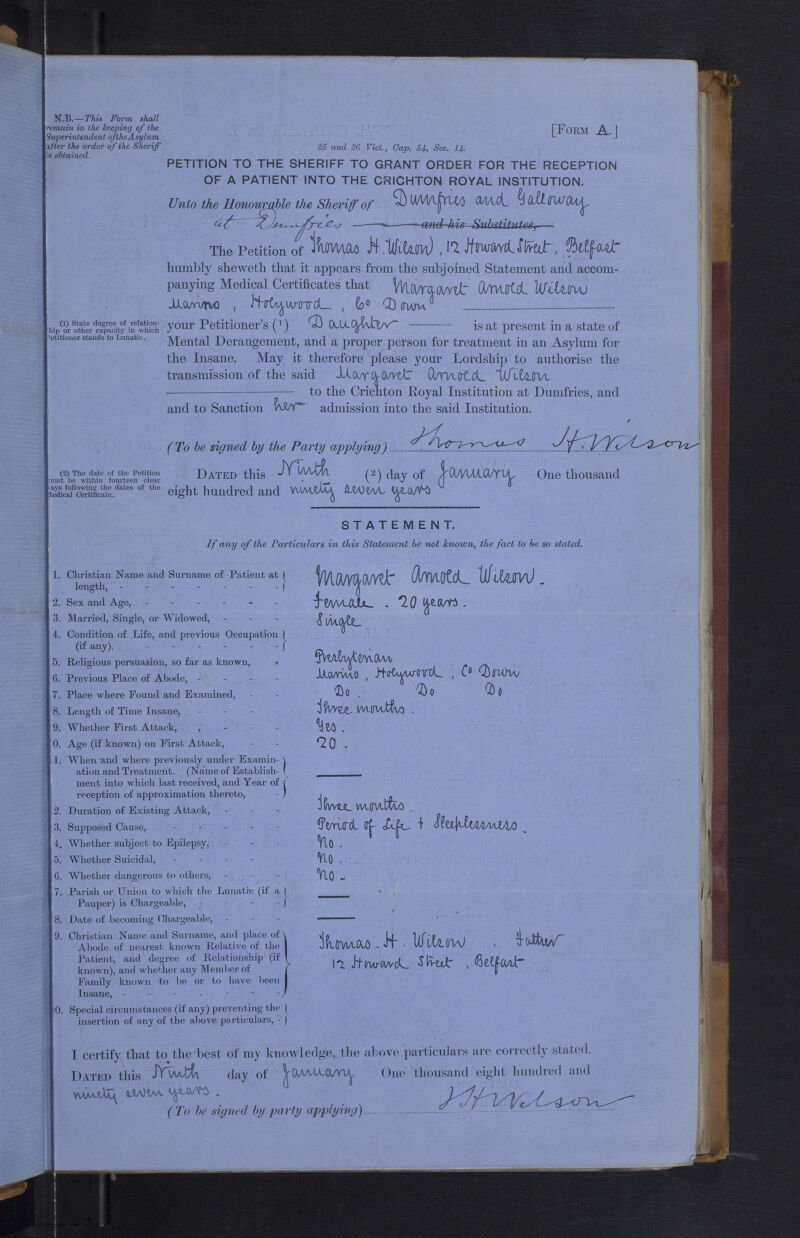 N.B.—This Form shall
remain in the keeping of the
Superintendent of the Asylum
after the order of the Sheriff
is obtained.
[FORM A.]
25 and 26 Vict., Cap. 54, Sec. 14.
PETITION TO THE SHERIFF TO GRANT ORDER FOR THE RECEPTION
OF A PATIENT INTO THE CRICHTON ROYAL INSTITUTION.
Unto the Honourable the Sheriff of Dumfries and Galloway
at Dumfries and his Substitutes,
The Petition of Thomas H. Wilson, 12 Howard Street, Belfast
humbly sheweth that it appears from the subjoined Statement and accom-
panying Medical Certificates that Margaret Arnold Wilson
Marino, Holywood, Co Down
(1) State degree of relation-
ship or other capacity in which
Petitioner stands to Lunatic.
your Petitioner's (1) Daughter is at present in a state of
Mental Derangement, and a proper person for treatment in an Asylum for
the Insane. May it therefore please your Lordship to authorise the
transmission of the said Margaret Arnold Wilson
to the Crichton Royal Institution at Dumfries, and
and to Sanction her admission into the said Institution.
(To be signed by the Party applying) Thomas H. Wilson
(2) The date of the Petition
must be within fourteen clear
days following the dates of the
Medical Certificate.
DATED this Ninth (2) day of January One thousand
eight hundred and ninety seven years
STATEMENT.
If any of the Particulars in this Statement be not known, the fact to be so stated.
1. Christian Name and Surname of Patient at
length, - Margaret Arnold Wilson.
2. Sex and Age, - Female. 20 years.
3. Married, Single, or Widowed, - Single
4. Condition of Life, and previous Occupation
(if any). -
5. Religious persuasion, so far as known, - Presbyterian
6. Previous Place of Abode, - Marino, Holywood, Co Down
7. Place where Found and Examined, - Do. Do Do
8. Length of Time Insane, - Three months.
9. Whether First Attack, - Yes.
0. Age (if known) on First Attack, - 20.
1. When and where previously under Examin-
ation and Treatment. (Name of Establish-
ment into which last received, and Year of
reception of approximation thereto, -
2. Duration of Existing Attack, - Three months.
3. Supposed Cause, - Period of Life + Sleeplessness.
4. Whether subject to Epilepsy, - No.
5. Whether Suicidal, - No.
6. Whether dangerous to others, - No -
7. Parish or Union to which the Lunatic (if a
Pauper) is Chargeable, -
8. Date of becoming Chargeable, -
9. Christian Name and Surname, and place of
Abode of nearest known Relative of the Thomas. H. Wilson, Father
Patient, and degree of Relationship (if 12 Howard Street, Belfast
known), and whether any Member of
Family known to be or to have been
Insane, -
0. Special circumstances (if any) preventing the
insertion of any of the above particulars, -
I certify that to the best of my knowledge, the above particulars are correctly stated.
DATED this Ninth day of January One thousand eight hundred and
ninety seven years.
(To be signed by party applying) T H Wilson